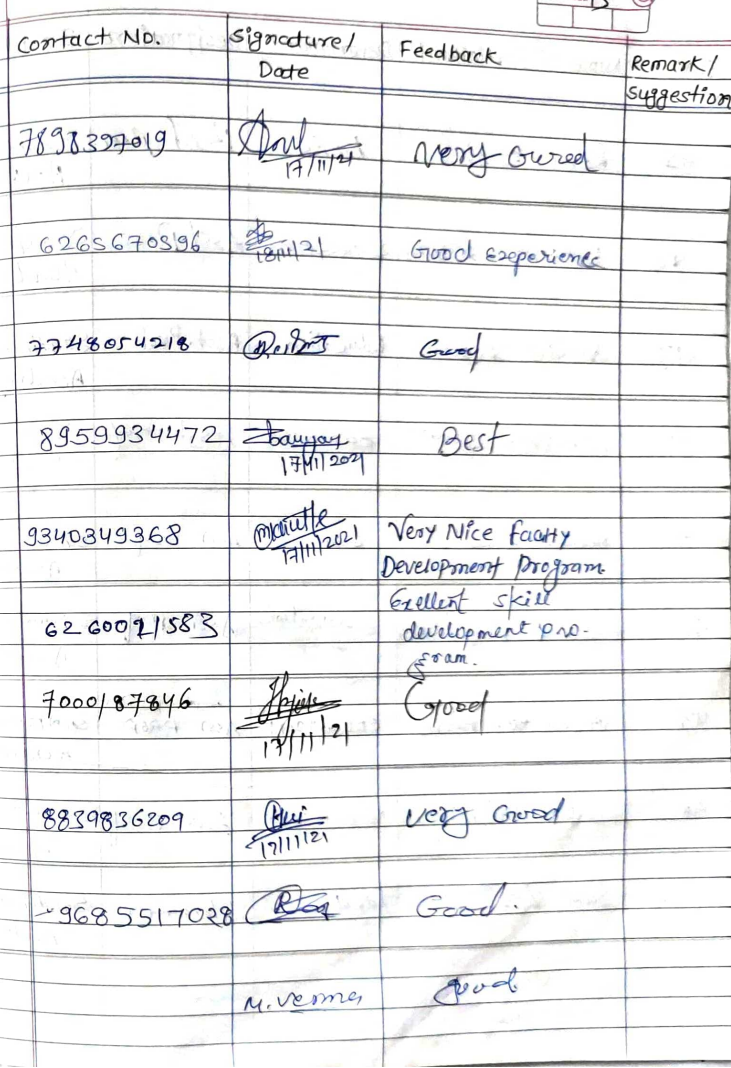 Contact No. Signature/ Feedback Remark/
Date Suggestion
7898397019 17/11/21 Very Gured
6265670596 18/11/21 Good Exeperience
7748054218 Good
8959934472 17/11/2021 Best
9340349368 17/11/2021 Very Nice
Development Program.
Exellent skill
6260091583 development pro-
gram.
7000187846 17/11/21 Good
8839836209 17/11/21 Very Good
9685517028 Good.
M. Verma good